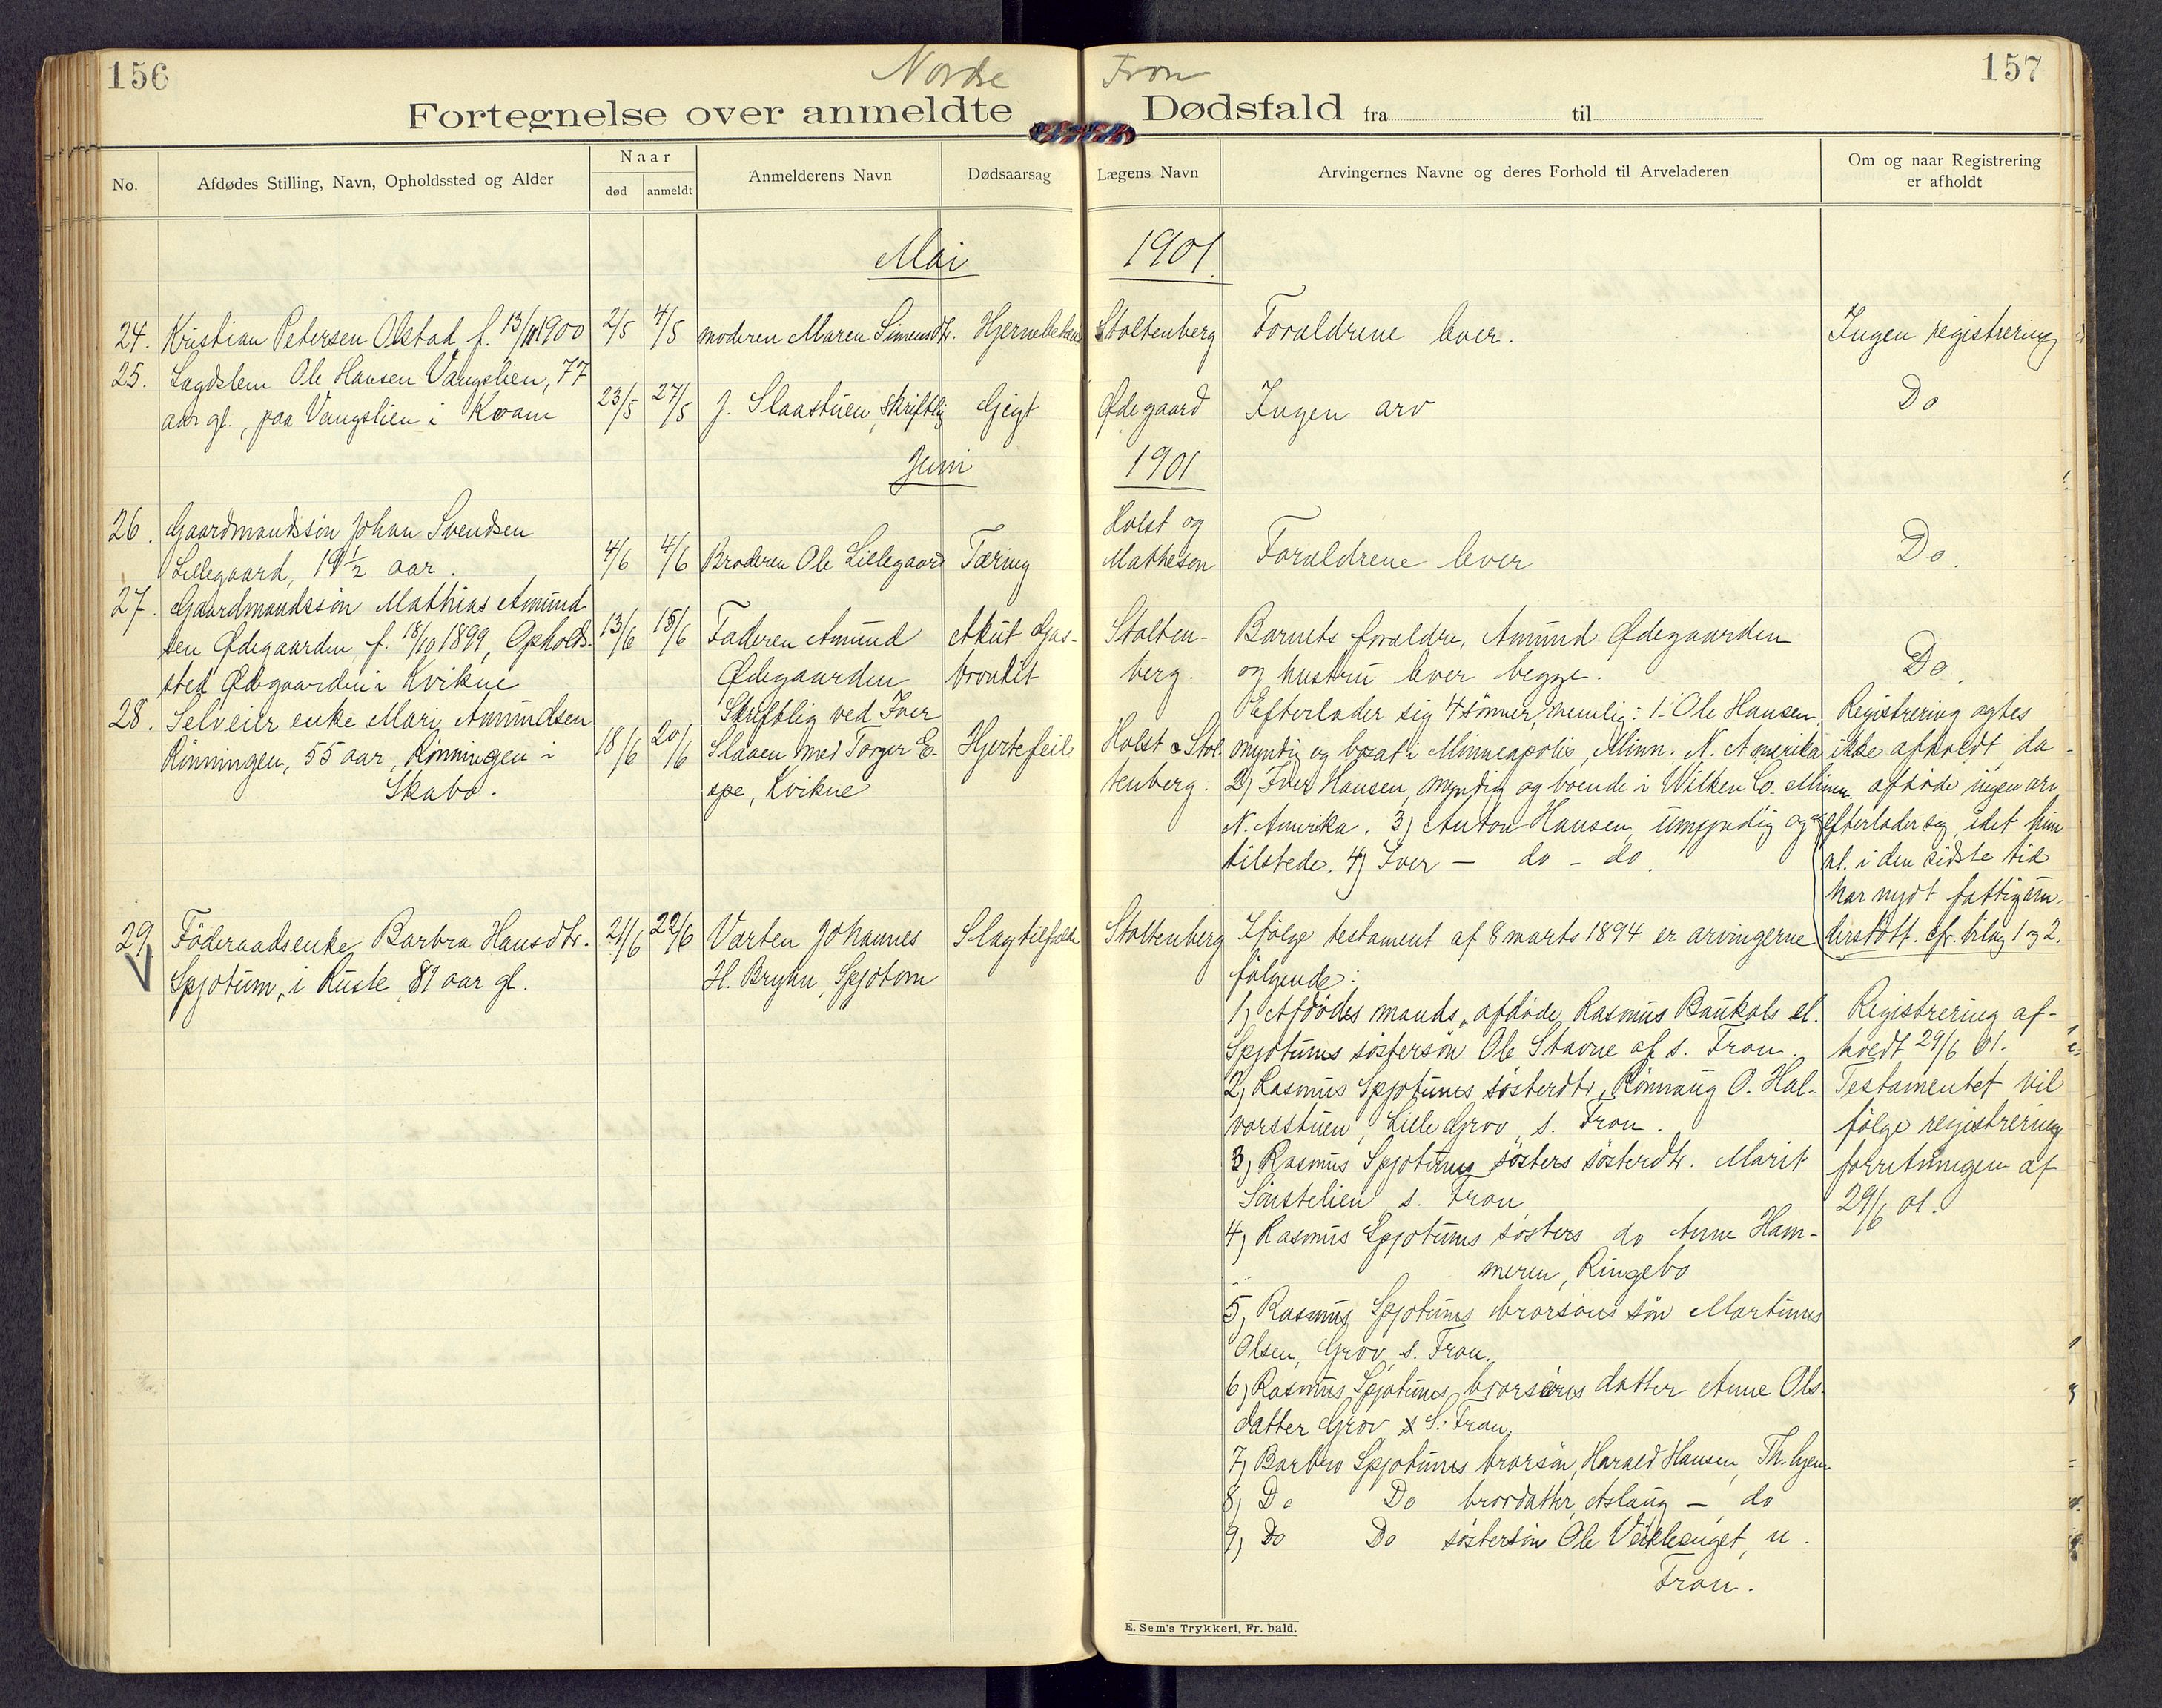 156
Nordre Fron
157
Fortegnelse over anmeldte Dødsfald fra til
No.
Afdødes Stilling, Navn, Opholdssted og Alder
Naar
død
anmeldt
Anmelderens Navn
Dødsaarsag
Lægens Navn
Arvingernes Navne og deres Forhold til Arveladeren
Om og naar Registrering
er afholdt
Mai 1901.
24. Kristian Petersen Olstad f. 13/11 1900
2/5 4/5
moderen Maren Simensdtr.
Stoltenberg
Forældrene lever.
Ingen registrering
25. Lægdslem Ole Hansen Vangslien, 77
aar gl., paa Vangslien i Kvam
23/5 27/5
J. Slaastuen, skriftlig
Gigt
Ødegaard
Ingen arv
Do
Juni 1901
26. Gaardmandssøn Johan Svendsen
Lillegaard, 19½ aar.
4/6 4/6
Broderen Ole Lillegaard
Tæring
Holst og
Matheson
Forældrene lever
Do.
27. Gaardmandssøn Mathias Amund-
sen Ødegaarden f. 18/10 1899, Opholds-
sted Ødegaarden i Kvikne
13/6 15/6
Faderen Amund
Ødegaarden
Akut Gas-
bronkit
Stolten-
berg.
Barnets forældre, Amund Ødegaarden
og hustru lever begge.
Do.
28. Selveier enke Mari Amundsen
Rønningen, 55 aar, Rønningen i
Skabo.
18/6 20/6
Skriftlig ved Iver
Slaaen med Torger E-
spe, Kvikne
Hjertefeil
Holst & Stol-
tenberg.
Efterlader sig 4 sønner, nemlig: 1. Ole Hansen,
myndig og bosat i Minneapolis, Minn. N. Amerika
2) Iver Hansen, myndig og boende i Wilken Co. Minn.
N. Amerika. 3) Anton Hansen, umyndig og
tilstede. 4) Iver — do — do.
Registrering agtes
ikke afholdt, da
afdøde ingen arv
efterlader sig, idet hun
bl. i den sidste tid
har nydt fattigun-
derstøtt. cfr. bilag 1 og 2.
29. Føderaadsenke Barbra Hansdtr.
Spjotum, i Ruste, 81 aar gl.
21/6 22/6
Varten Johannes
H. Bryhn, Spjotum
Slagtilfælde
Stoltenberg
Ifølge testament af 8 marts 1894 er arvingerne
følgende:
1) Afdødes mands, afdøde Rasmus Baukols el.
Spjotums søstersøn Ole Stavne af s. Fron.
2) Rasmus Spjotums søsterdtr, Rønnaug O. Hal-
vorsstuen, Lille Grov, s. Fron.
3) Rasmus Spjotums søsters søsterdtr. Marit
Sønstelien s. Fron
4) Rasmus Spjotums søsters do Anne Ham-
meren, Ringebo
5) Rasmus Spjotums brorsøns søn Martinus
Olsen, Grov, s. Fron.
6) Rasmus Spjotums brorsøns datter Anne Ols-
datter Grov S. Fron.
7) Barbro Spjotums brorsøn, Harald Hansen,
8) Do Do brordatter, Aslaug — do
9) Do Do søstersøn Ole n.
Fron.
Registrering af-
holdt 29/6 01.
Testamentet vil
følge registrerings
forretningen af
29/6 01.
E. Sem's Trykkeri, Fr. hald.